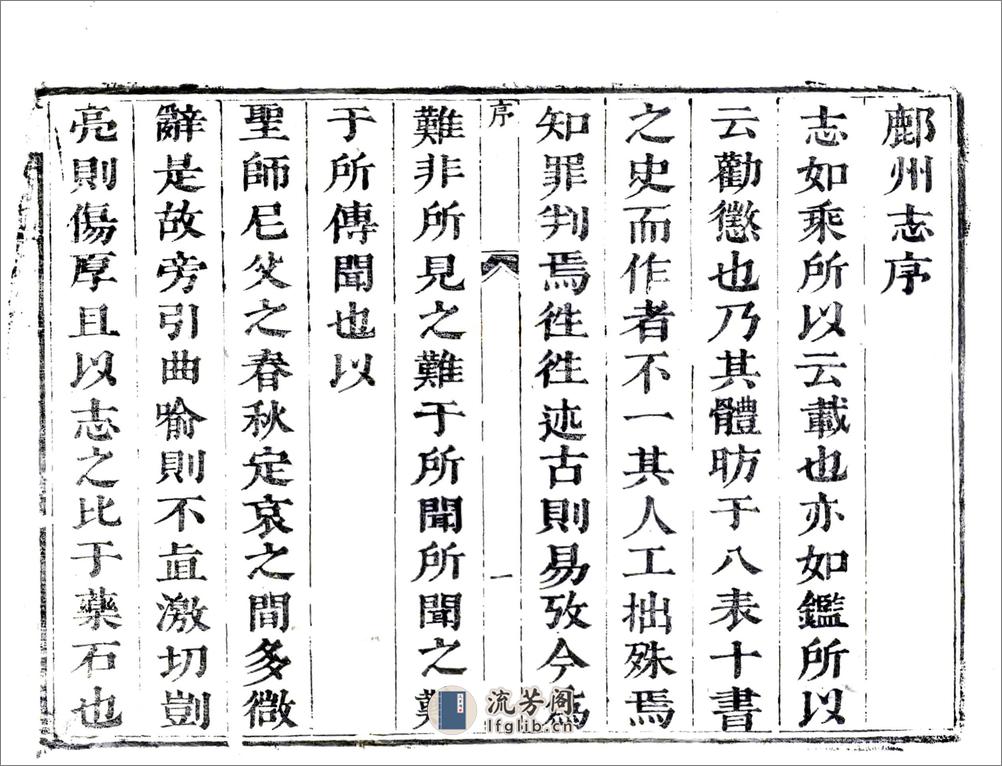 鄜州志序
志如乘所以云載也亦如鑑所以
云勸懲也乃其體昉于八表十書
之史而作者不一其人工拙殊焉
知罪判焉徃徃述古則易攷今為
序
一
難非所見之難于所聞所聞之難
于所傳聞也以
聖師尼父之春秋定哀之間多微
辭是故旁引曲喻則不直激切剴
亮則傷厚且以志之比于藥石也
流芳阁
lfglib.cn